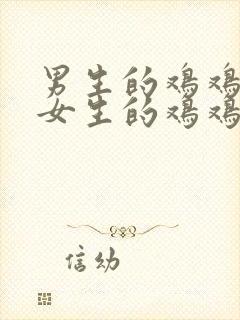 男生的鸡鸡
女生的鸡鸡
信幼